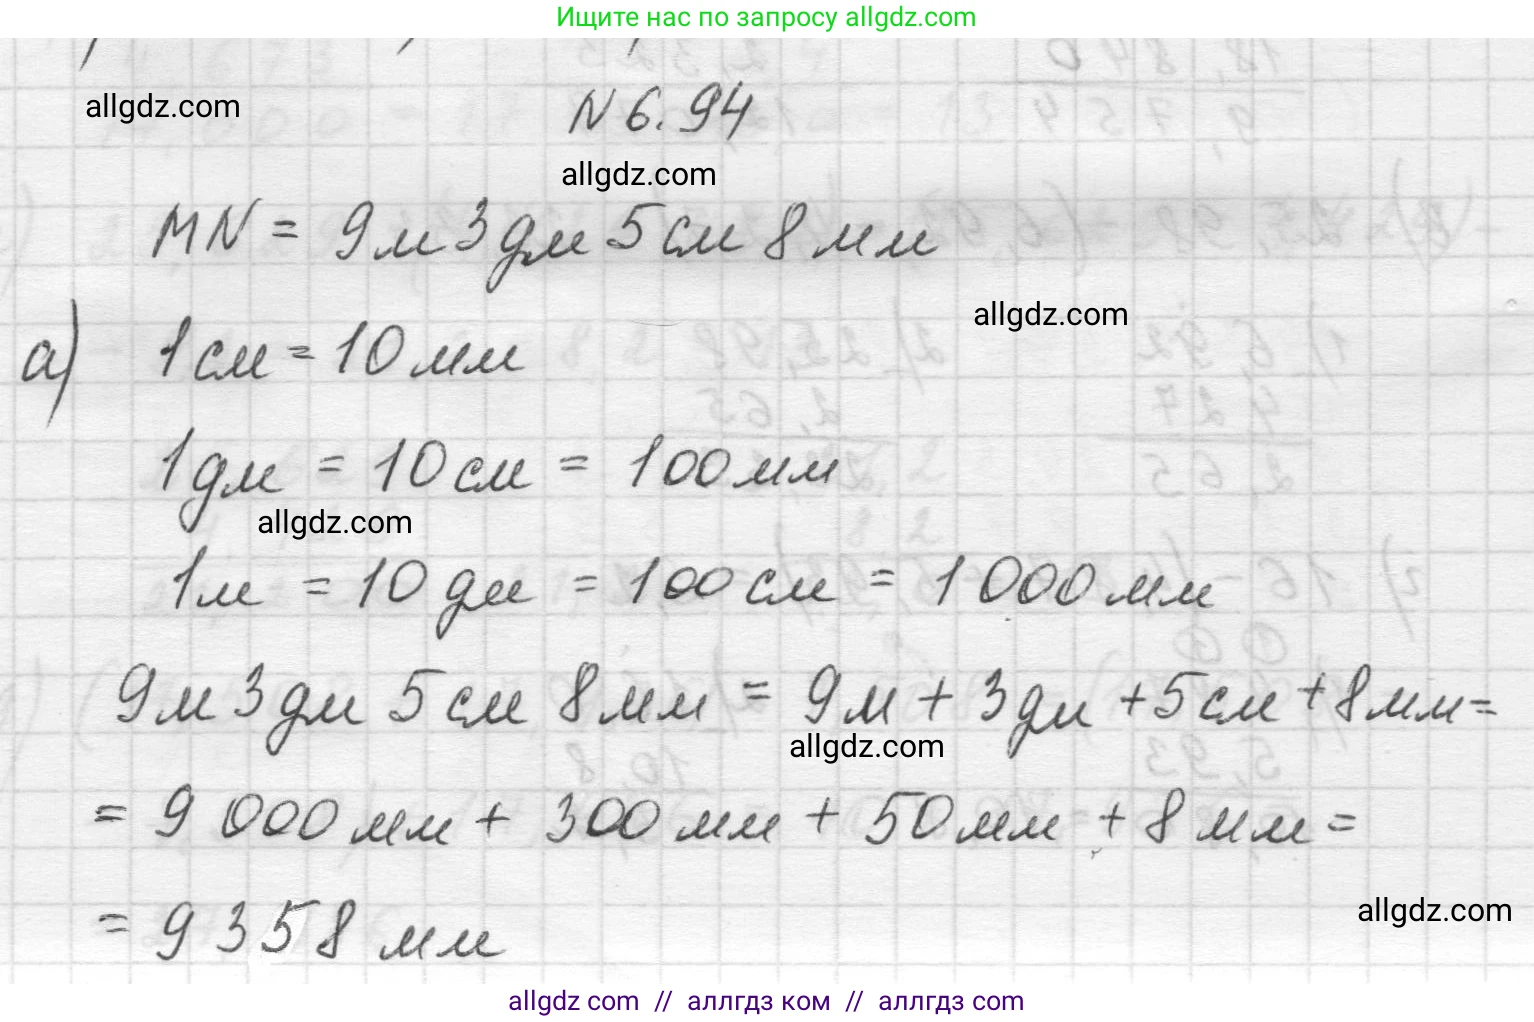 Ищите нас по запросу allgdz.com
allgdz.com
N 6.94
allgdz.com
MN = 9м 3дм 5см 8мм
allgdz.com
а) 1см = 10мм
1дм = 10см = 100мм
allgdz.com
1м = 10дм = 100см = 1000мм
9м 3дм 5см 8мм = 9м + 3дм + 5см + 8мм =
allgdz.com
= 9 000мм + 300мм + 50мм + 8мм =
allgdz.com
= 9358мм
allgdz com // аллгдз ком // аллгдз com